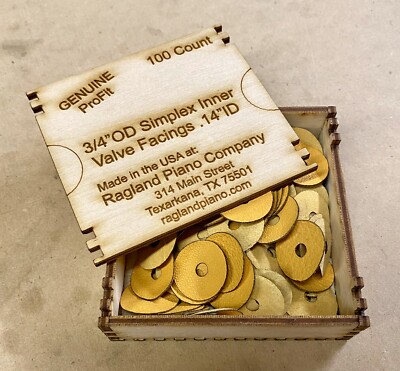 GENUINE
ProFit
100 Count
3/4"OD Simplex Inner
Valve Facings .14"ID
Made in the USA at:
Ragland Piano Company
314 Main Street
Texarkana, TX 75501
raglandpiano.com